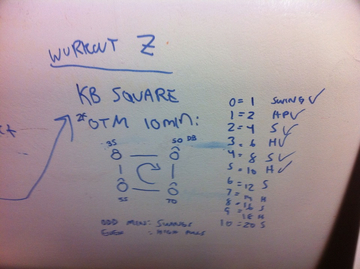 WORKOUT Z
KB SQUARE
OTM 10 min:
35
50 DB
55
70
ODD MIN: SWINGS
EVEN : HIGH PULLS
0 = 1 SWING ✓
1 = 2 HP ✓
2 = 4 S ✓
3 = 6 H ✓
4 = 8 S ✓
5 = 10 H ✓
6 = 12 S
7 = H
8 = 16 S
9 = 18 H
10 = 20 S